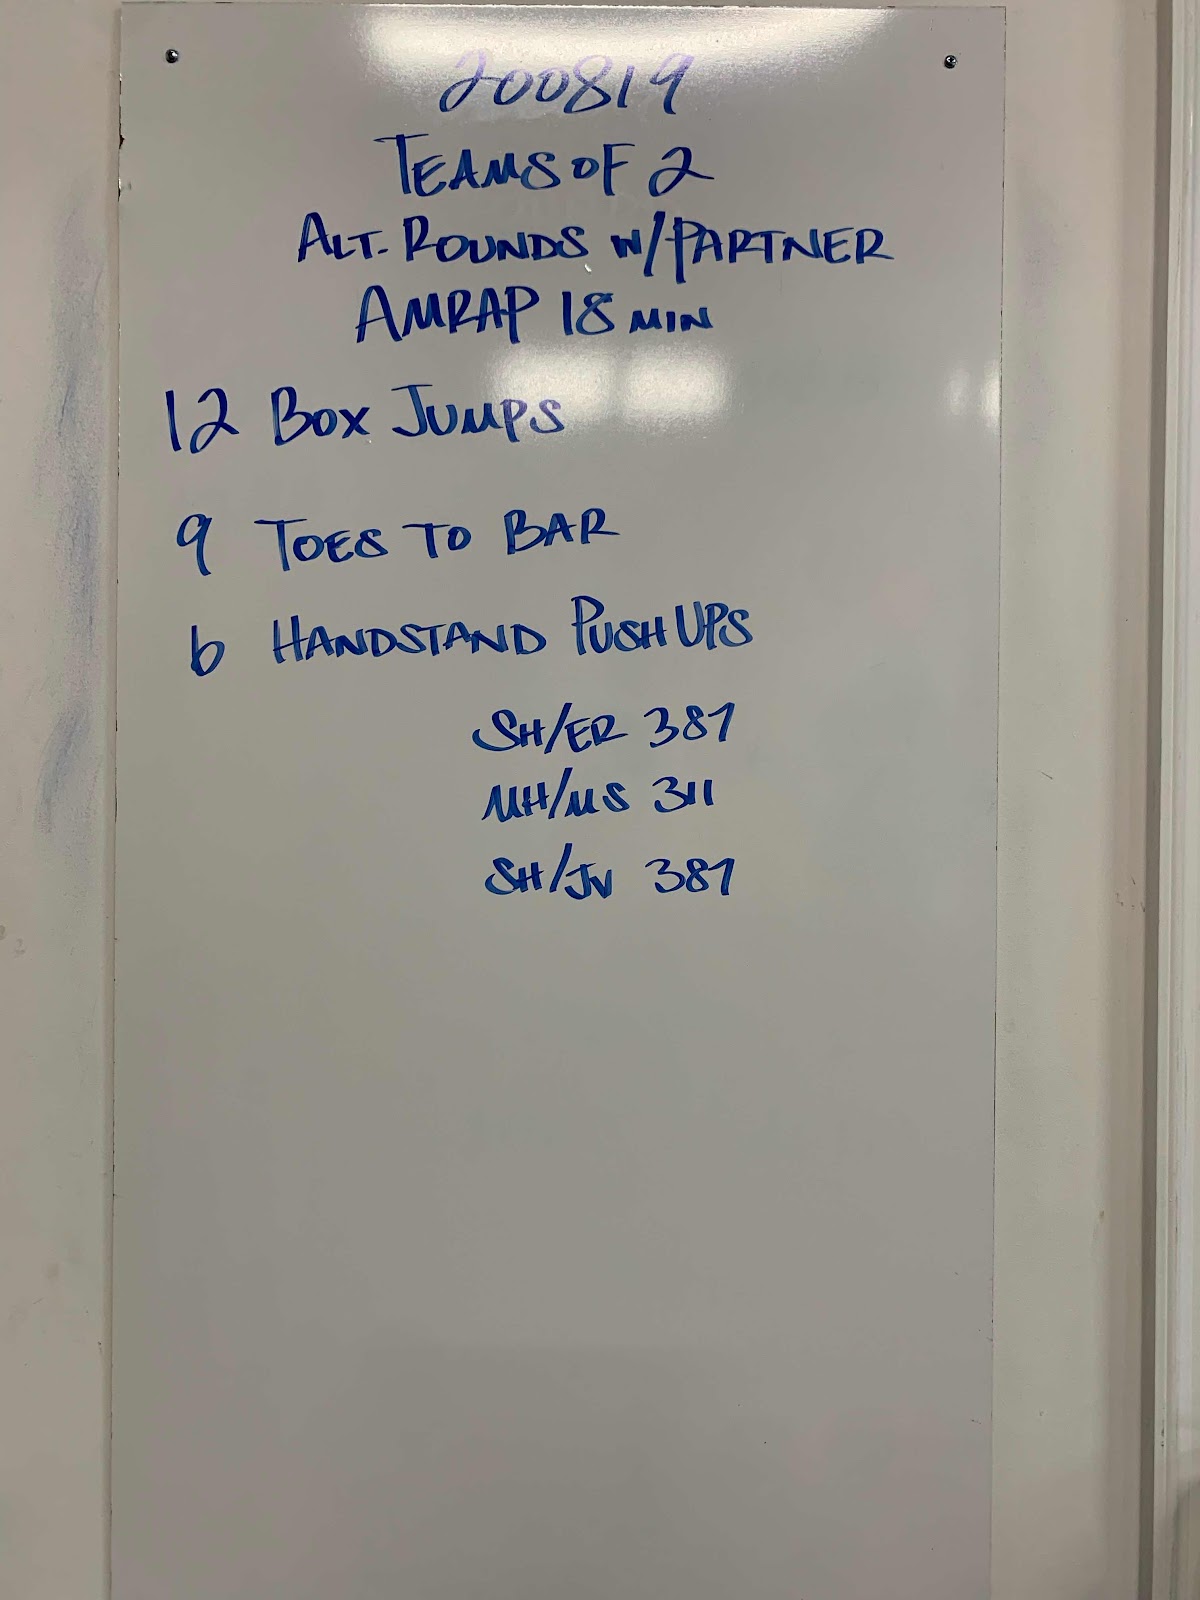 200819
TEAMS OF 2
ALT. ROUNDS W/PARTNER
AMRAP 18 MIN
12 BOX JUMPS
9 TOES TO BAR
6 HANDSTAND PUSH UPS
SH/ER 387
MH/MS 311
SH/JV 387